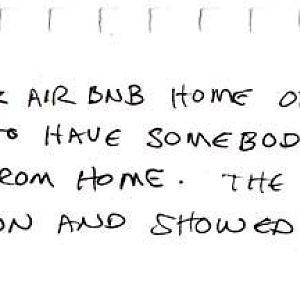 AIRBNB HOME
TO HAVE SOMEBOD
ROM HOME. THE
ON AND SHOWED